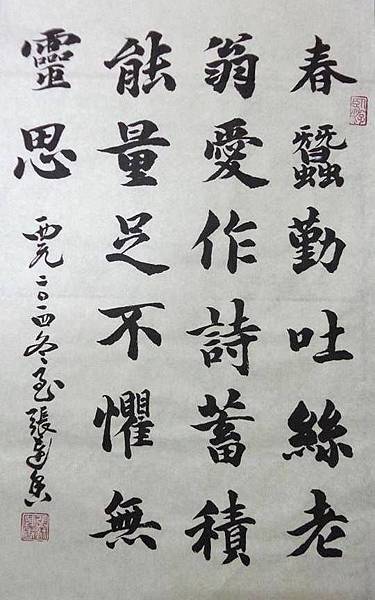 春蠶勤吐絲老
翁愛作詩蓄積
能量足不懼無
靈思
西元二〇一四冬至張達